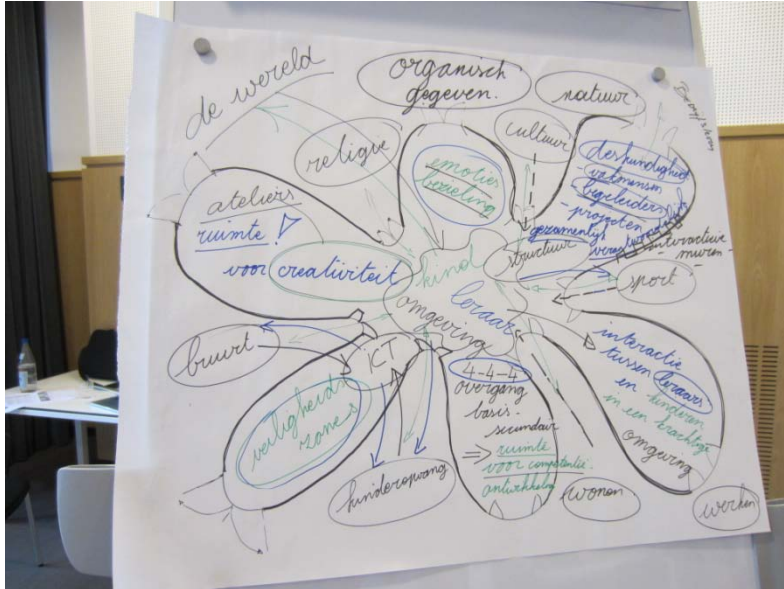 de wereld
organisch
gegeven.
natuur
religie
cultuur
emoties
bezieling
deskundigheid
- vakmensen
- begeleiders
- projecten
gezamenlijk
verantwoordelijk
structuur
- interactieve
muren -
ateliers
ruimte!
voor creativiteit
kind
omgeving
leraar
sport
buurt
ICT
interactie
tussen leraars
en kinderen
in een krachtige
omgeving
4-4-4
overgang
basis-
secundair
=> ruimte
voor competentie-
ontwikkeling
veiligheids
zone-s
kinderopvang
wonen
werken